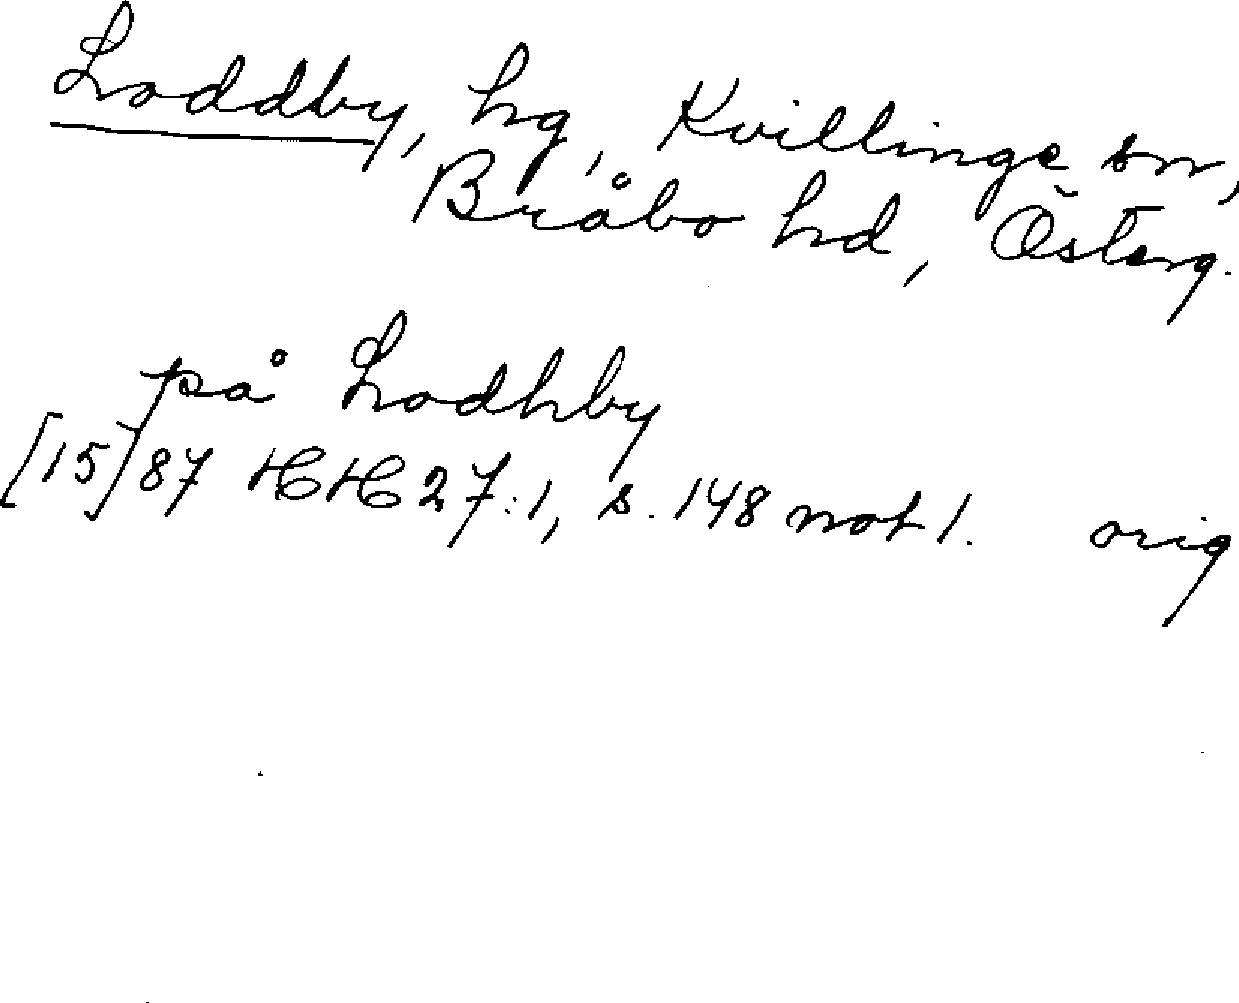 Loddby, hg, Kvillinge sn,
Bråbo hd, Österg.
på Lodhby
[15]87 HH 27:1, s. 148 not 1. orig